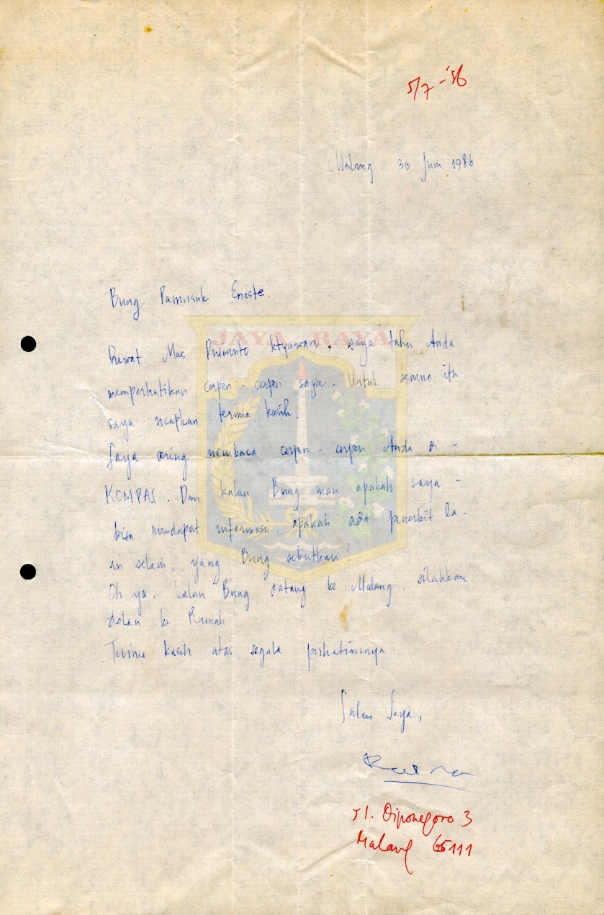 5/7-'86
Malang, 30 Juni 1986
Bung Pamusuk Eneste.
JAYA RAYA
Lewat Mas saya tahu Anda
memperhatikan cerpen-cerpen saya. Untuk semua itu
saya ucapkan terima kasih.
Saya sering membaca cerpen-cerpen Anda di-
KOMPAS. Dan kalau Bung apakah saya-
bisa mendapat informasi apakah ada penerbit la-
in selain, yang Bung sebutkan?
Oh ya, kalau Bung datang ke Malang, silahkan
dolan ke Rumah
Terima kasih atas segala perhatiannya.
Salam Saya,
Jl. Diponegoro 3
Malang 65111